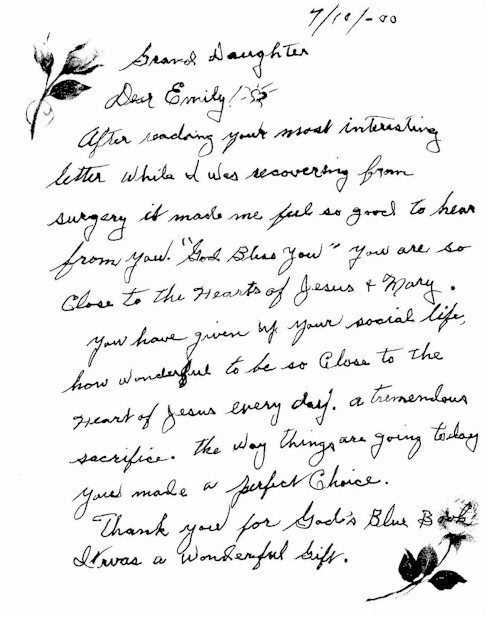 7/10/-00
Grand Daughter
Dear Emily!
After reading your most interesting
letter while I was recovering from
surgery it made me feel so good to hear
from you. "God Bless You" you are so
Close to the Hearts of Jesus & Mary.
You have given up your social life,
how wonderful to be so Close to the
Heart of Jesus every day. a tremendous
sacrifice. the way things are going today
you made a perfect Choice.
Thank you for God's Blue Book
It was a wonderful gift.